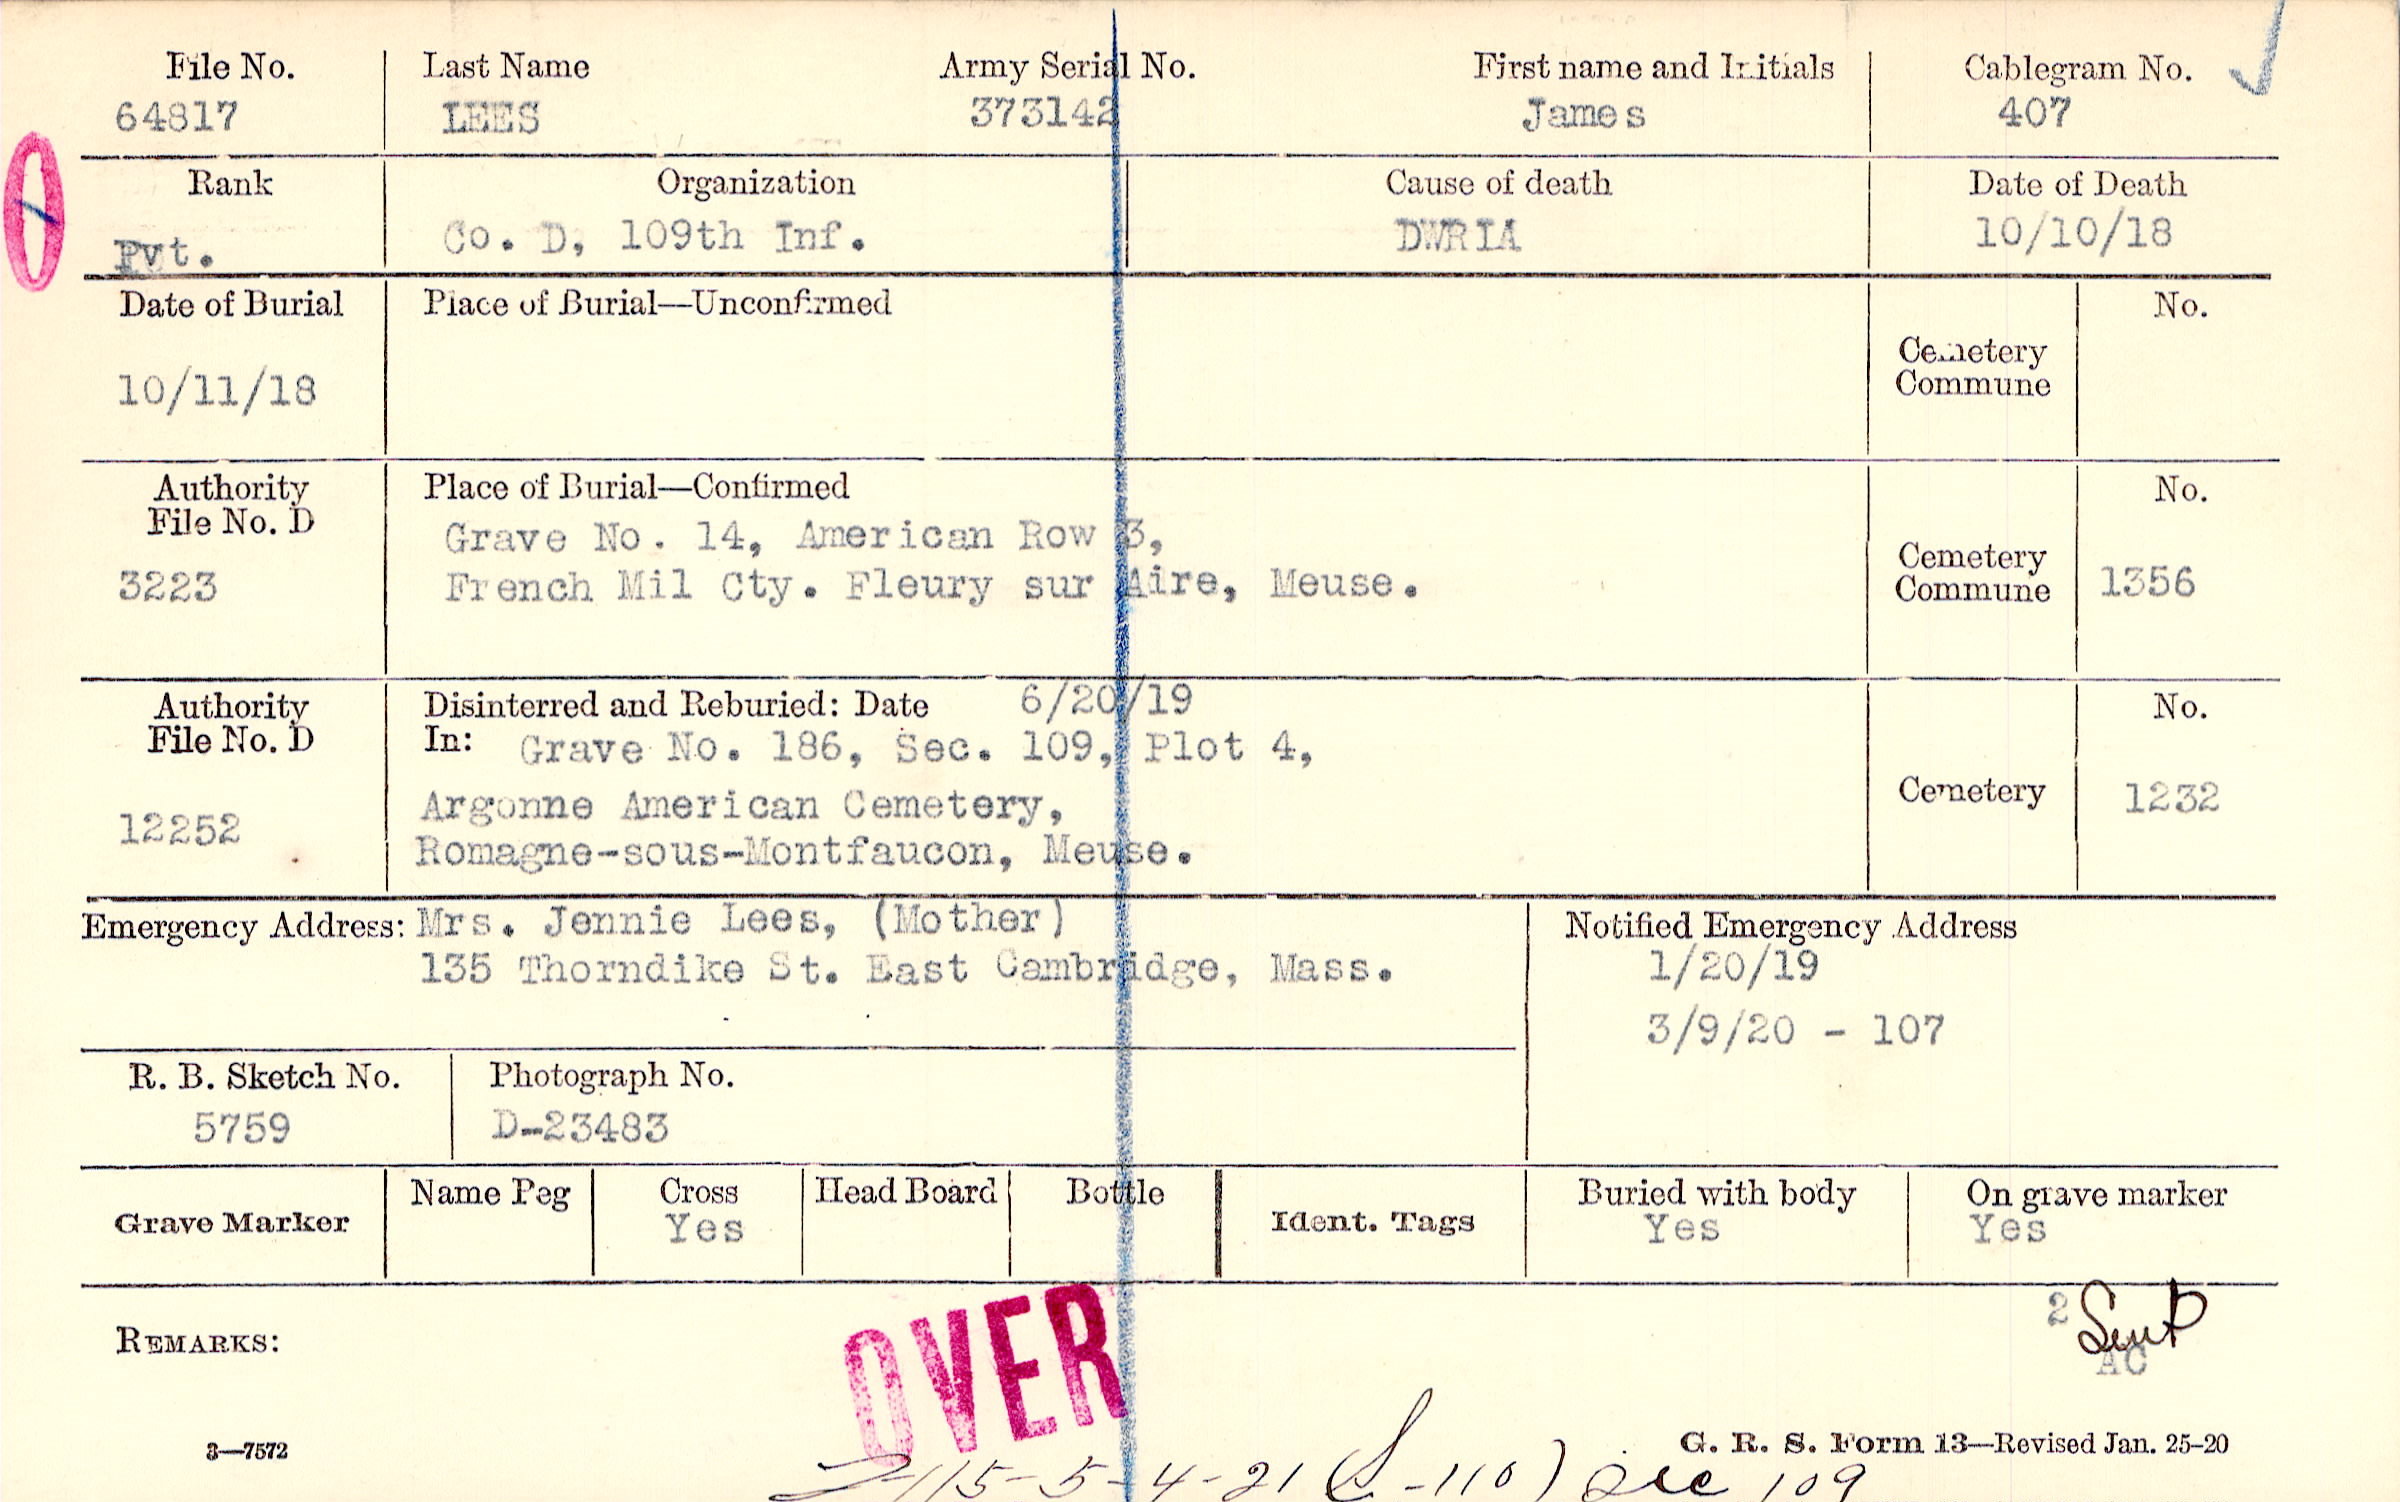 File No. Last Name Army Serial No. First name and Initials Cablegram No.
64817 LEES 373142 James 407
Rank Organization Cause of death Date of Death
Pvt. Co. D, 109th Inf. DWRIA 10/10/18
Date of Burial Place of Burial—Unconfirmed No.
10/11/18 Cemetery
Commune
Authority Place of Burial—Confirmed No.
File No. D Grave No. 14, American Row 3,
3223 French Mil Cty. Fleury sur Aire, Meuse. Cemetery
Commune 1356
Authority Disinterred and Reburied: Date 6/20/19 No.
File No. D In: Grave No. 186, Sec. 109, Plot 4,
12252 Argonne American Cemetery, Cemetery 1232
Romagne-sous-Montfaucon, Meuse.
Emergency Address: Mrs. Jennie Lees, (Mother) Notified Emergency Address
135 Thorndike St. East Cambridge, Mass. 1/20/19
3/9/20 - 107
R. B. Sketch No. Photograph No.
5759 D-23483
Grave Marker Name Peg Cross Head Board Bottle Ident. Tags Buried with body On grave marker
Yes Yes Yes
REMARKS: OVER 2
AC
3—7572 G. R. S. Form 13—Revised Jan. 25-20
115-5-4-21 -110) Sec 109